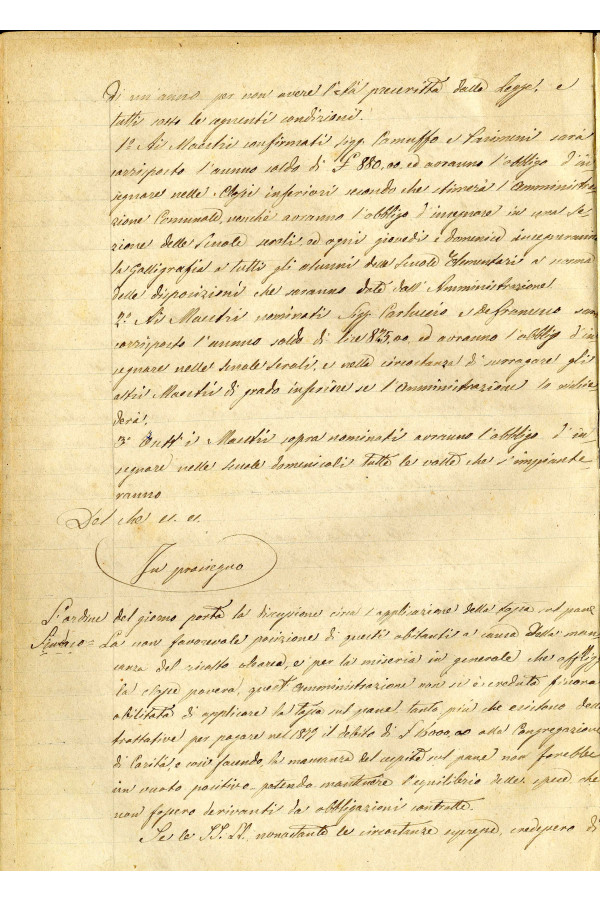 di un'anno per non avere l'età prescritta dalla legge, e
tutti sotto le seguenti condizioni.
1° Ai Maestri confirmati Sigg. Camuffo e sarà
corrisposto l'annuo soldo di £ 880,00 ed avranno l'obbligo d'in
segnare nelle Classi inferiori secondo che stimerà l'Amministra
zione Comunale, nonchè avranno l'obbligo d'insegnare in una Se
zione delle Scuole serali, ed ogni giovedì e domenica insegneranno
la Calligrafia a tutti gli alunni delle Scuole Elementari a norma
delle disposizioni che saranno date dall'Amministrazione
2° Ai Maestri nominati Sigg. Carluccio e de Franceso sarà
corrisposto l'annuo soldo di lire 825,00, ed avranno l'obbligo d'in
segnare nelle Scuole Serali, e nella circostanza di surrogare gli
altri Maestri di grado inferiore se l'Amministrazione lo richie
derà.
3° Tutti i Maestri sopra nominati avranno l'obbligo d'in
segnare nelle Scuole domenicali tutte le volte che s'impiante
ranno
Del che
In proseguo
L'ordine del giorno porta la discussione circa l'applicazione della tassa sul pane
Sindaco = La non favorevole posizione di questi abitanti a causa della man
canza del risolto e per la miseria in generale che affligge
la classe povera, quest'amministrazione non si è creduta finora
abilitata di applicare la tassa sul pane, tanto più che esistono delle
trattative per pagare nel 1879 il debito di £ alla Congregazione
di Carità, e così facendo, la mancanza del cespite sul pane non farebbe
un vuoto positivo, potendo mantenere l'equilibrio delle spese che
non fossero derivanti da obbligazioni contratte.
Se le SS. LL. nonostante le circostanze espresse, credessero di